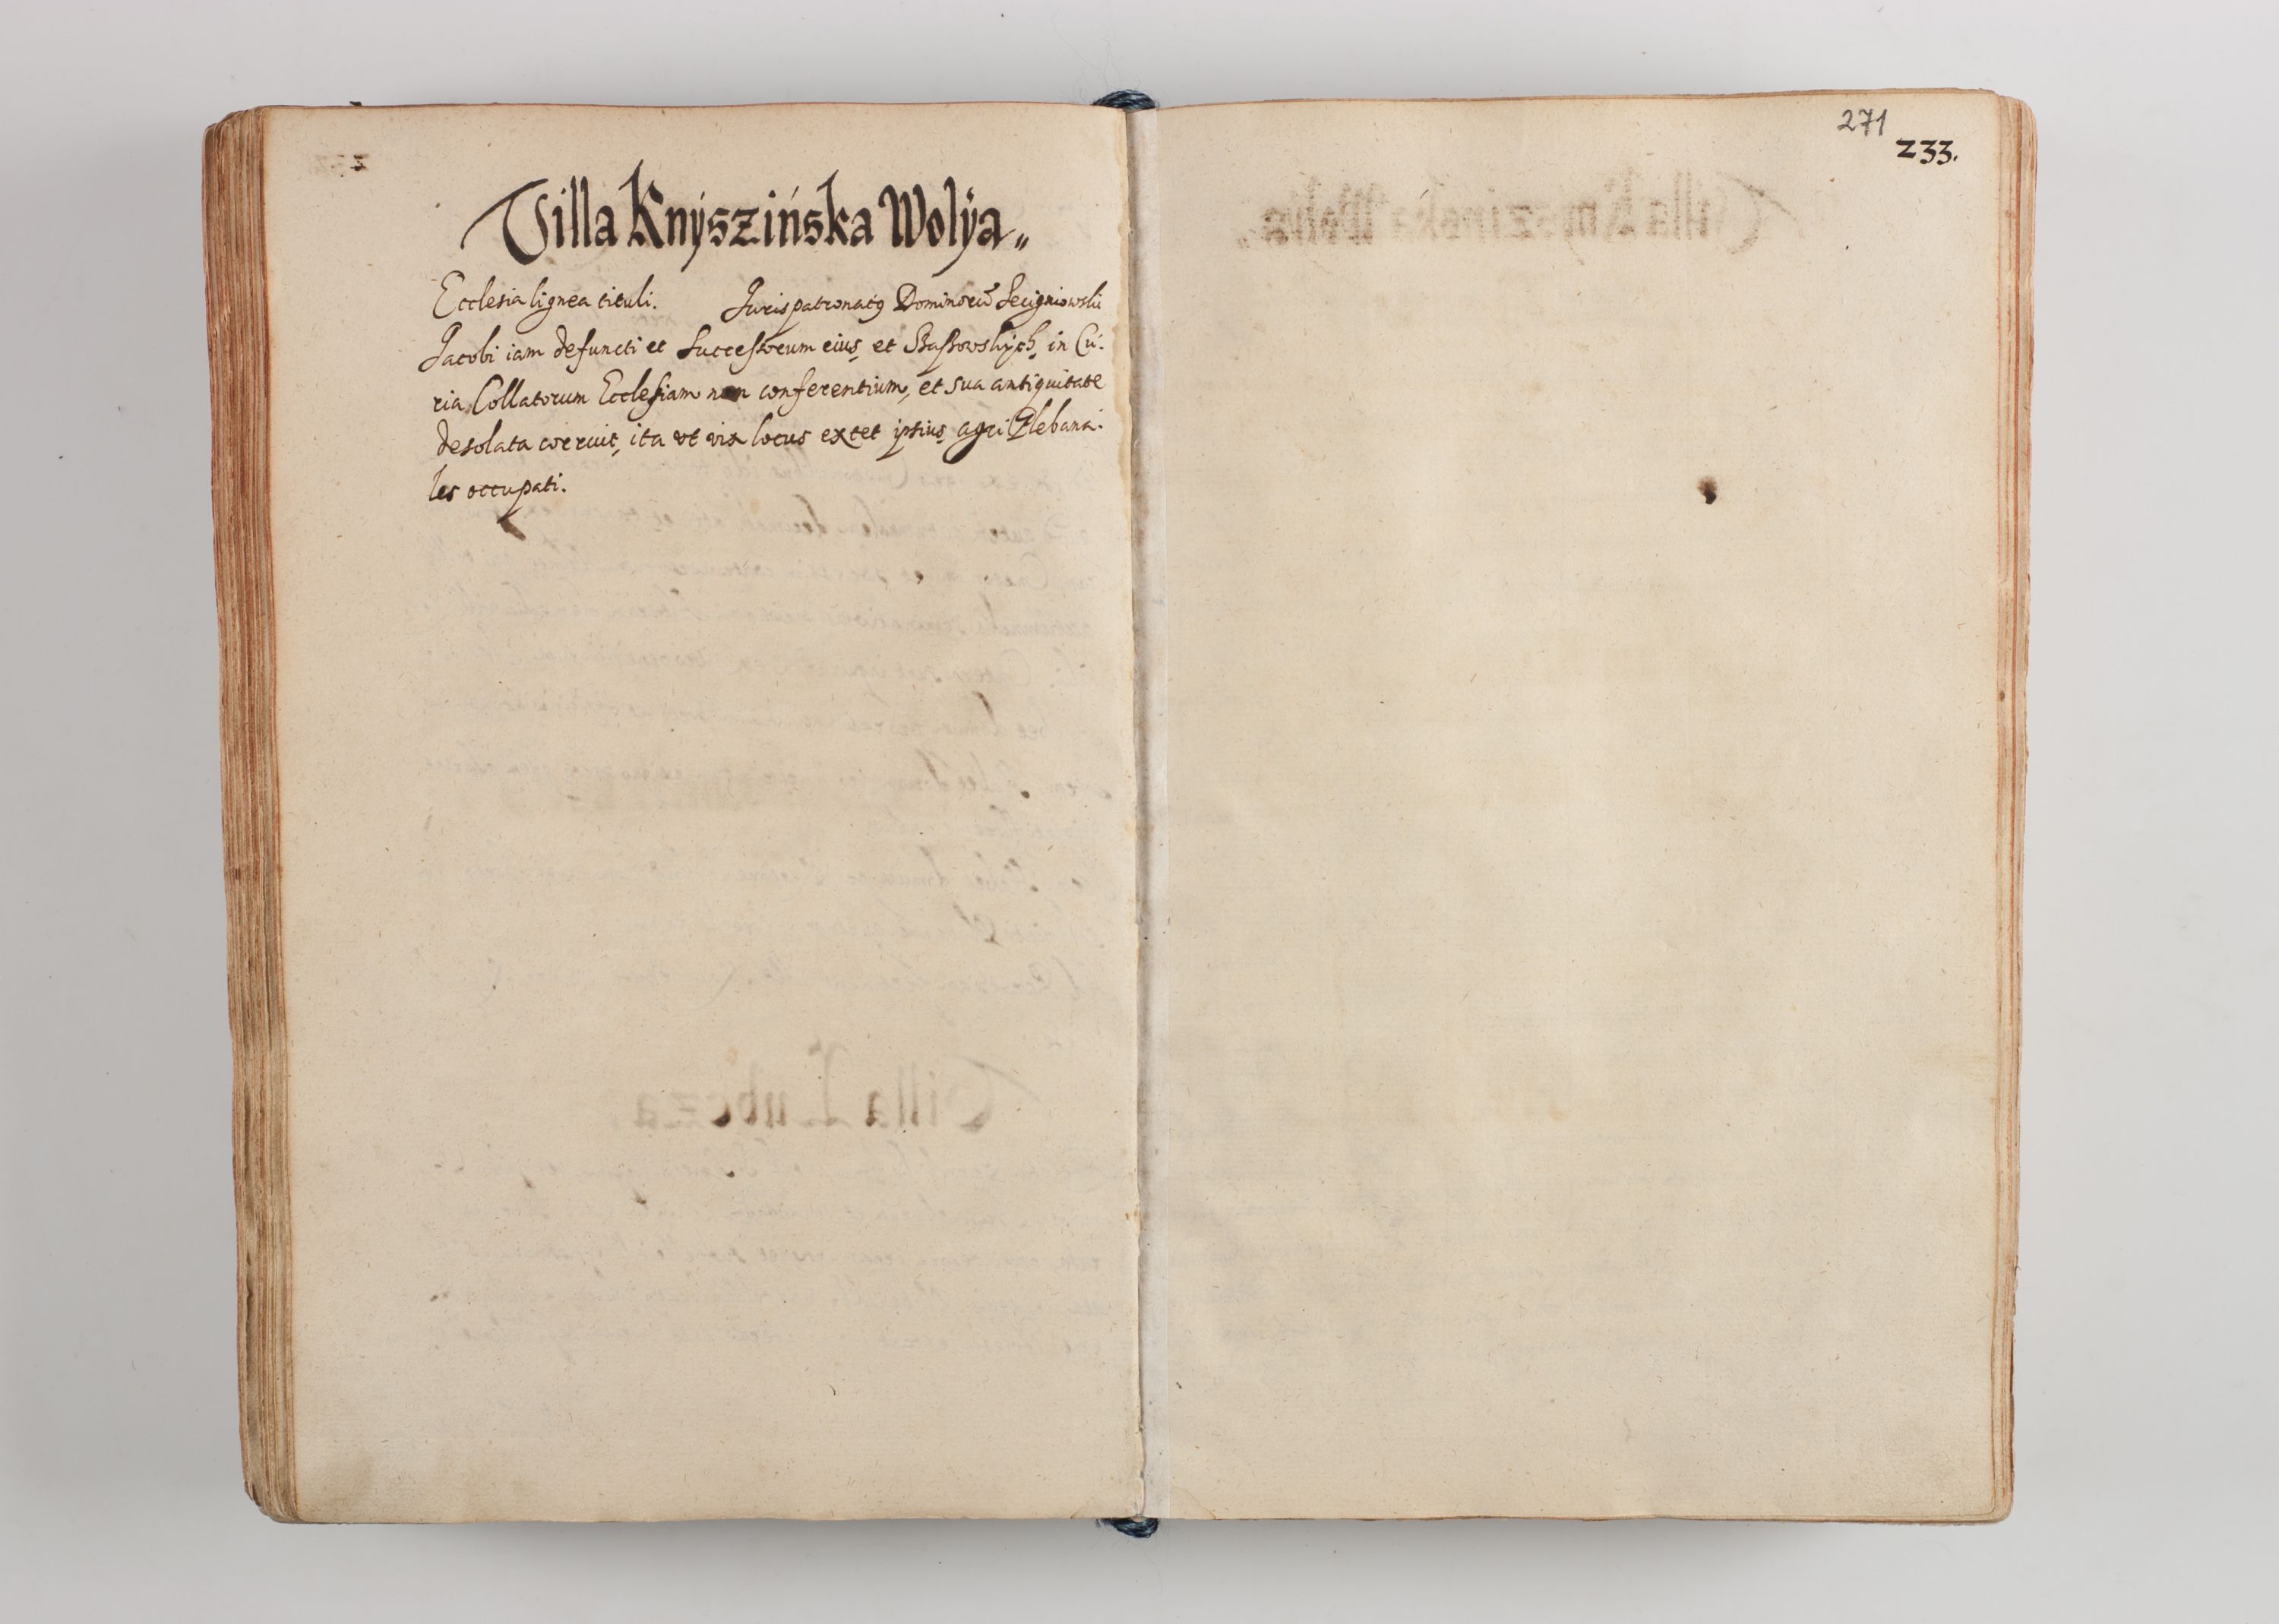 Villa Knÿszińska Wolÿa„
Ecclesia lignea tituli. Jurispatronatꝯ Dominorũ Secigniowskii
Jacobi iam defuncti et Successorum eius, et Stassowskÿch, in Cu-
ria Collatorum Ecclesiam non conferentium, et sua antiquitate
desolata corruit, ita vt vix locus extet ipsius, agri Plebana-
les occupati.
271
233.